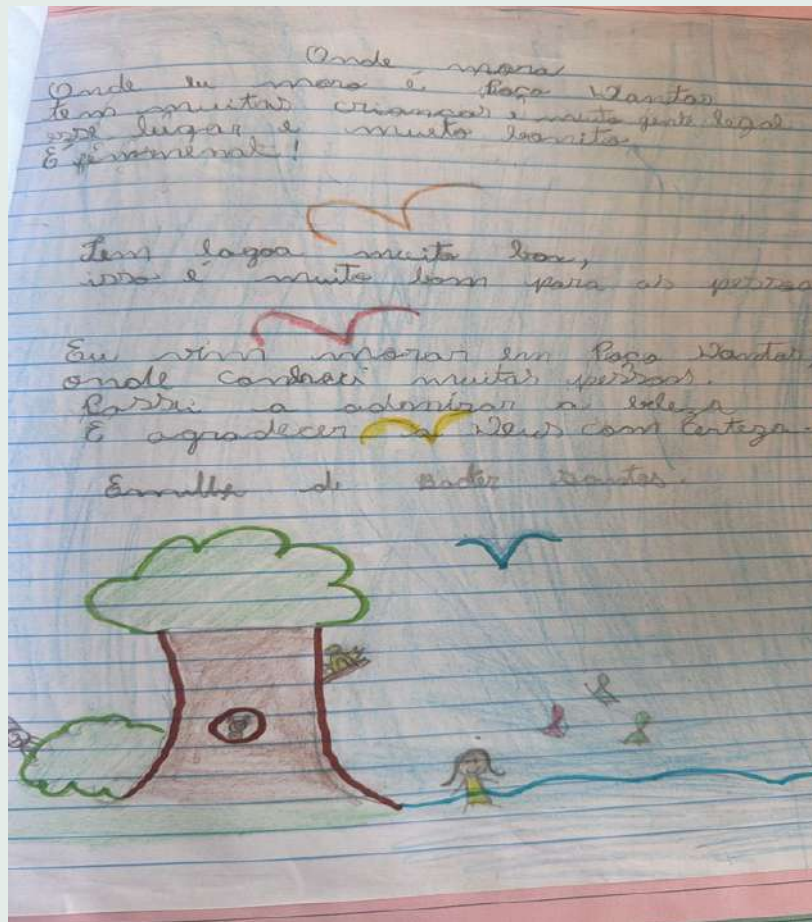 Onde mora
Onde eu moro é Poço Dantas
tem muitas crianças e muita gente legal
esse lugar é muito bonito
É fenomenal!
Tem lagoa muito boa,
isso é muito bom para as pessoa
Eu vim morar em Poço Dantas,
onde conheci muitas pessoas.
Passei a admirar a beleza
E agradecer a Deus com certeza.
de Dantas.